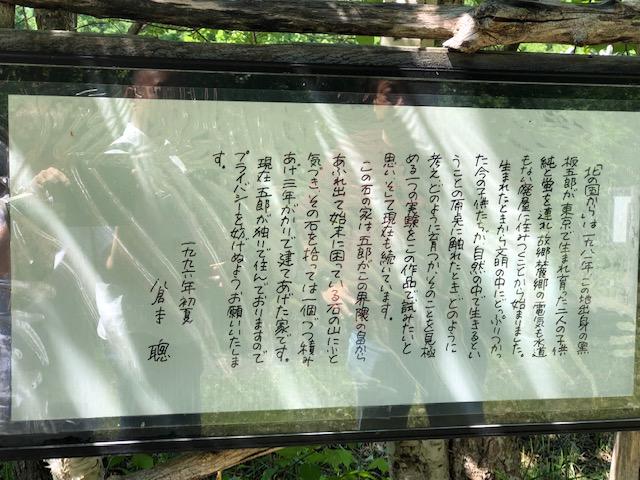 「北の国から」は一九八一年、この地出身の黒
板五郎が東京で生まれ育った二人の子供
純と蛍を連れ、故郷麓郷の電気も水道
もない廃屋に住みつくことから始まりました。
生まれたときから文明の中にどっぷりつかっ
た今の子供たちが、自然の中で生きるとい
うことの原点に触れたとき、どのように
考え、どのように育つか、そのことを見極
める一つの実験をこの作品で試みたいと
思い、そして現在も続いています。
この石の家は五郎がこの界隈の畠から
あふれ出て始末に困っている石の山にふと
気づき、その石を拾っては一個づつ積み
あげ三年がかりで建てあげた家です。
現在五郎が独りで住んでおりますので
プライバシーを妨げぬようお願いいたしま
す。
一九九六年初夏
倉本 聰